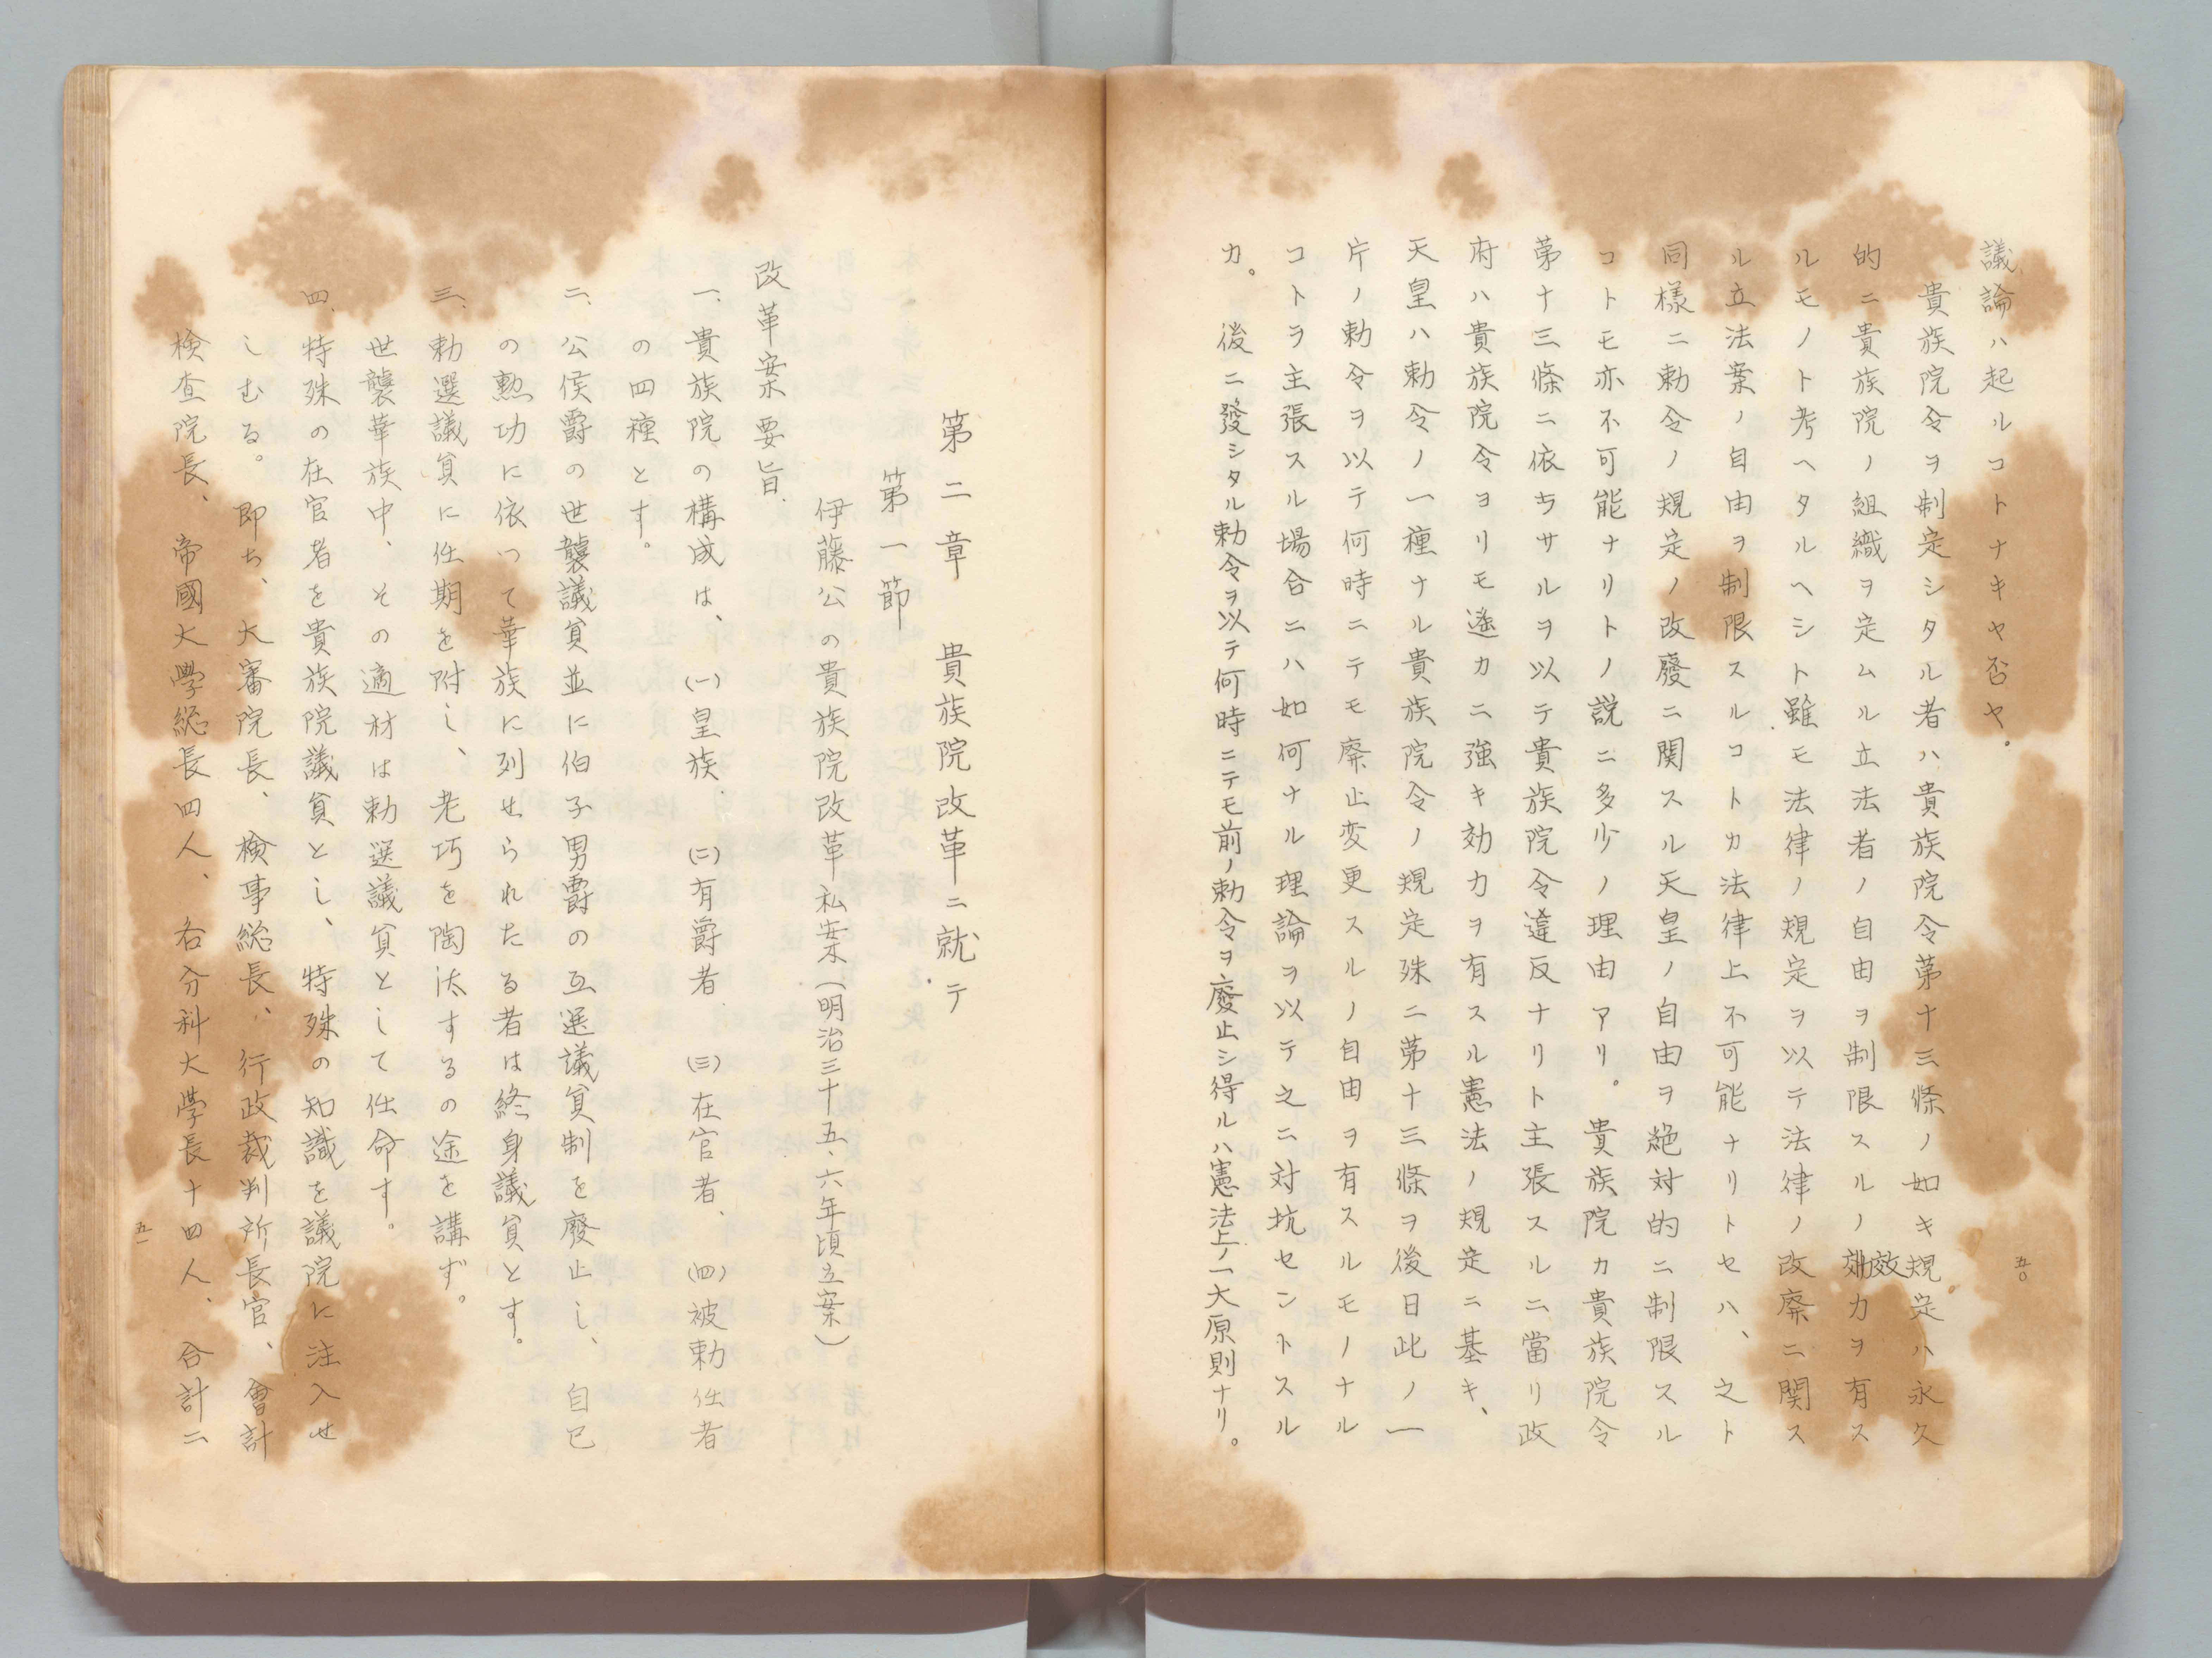 議論ハ起ルコトナキヤ否ヤ。
貴族院令ヲ制定シタル者ハ、貴族院令第十三條ノ如キ規定ハ永久
的ニ貴族院ノ組織ヲ定ムル立法者ノ自由ヲ制限スルノ効力ヲ有ス
ルモノト考ヘタルヘシト雖モ法律ノ規定ヲ以テ法律ノ改廃ニ関ス
ル立法案ノ自由ヲ制限スルコトカ法律上不可能ナリトセハ、之ト
同様ニ勅令ノ規定ノ改廢ニ関スル天皇ノ自由ヲ絶対的ニ制限スル
コトモ亦不可能ナリトノ説ニ多少ノ理由アリ。貴族院カ貴族院令
第十三條ニ依ラサルヲ以テ貴族院令違反ナリト主張スルニ當リ政
府ハ貴族院令ヨリモ遙カニ強キ効力ヲ有スル憲法ノ規定ニ基キ、
天皇ハ勅令ノ一種ナル貴族院令ノ規定殊ニ第十三條ヲ後日此ノ一
片ノ勅令ヲ以テ何時ニテモ廃止変更スルノ自由ヲ有スルモノナル
コトヲ主張スル場合ニハ如何ナル理論ヲ以テ之ニ対坑セントスル
カ。後ニ發シタル勅令ヲ以テ何時ニテモ前ノ勅令ヲ廢止シ得ルハ憲法上ノ一大原則ナリ。
五〇
第二章 貴族院改革ニ就テ
第一節
伊藤公の貴族院改革私案(明治三十五、六年頃立案)
改革案要旨
一、貴族院の構成は、(一)皇族、(二)有爵者 (三)在官者、(四)被勅任者
の四種とす。
二、公侯爵の世襲議員並に伯子男爵の互選議員制を廢止し、自己
の勲功に依つて華族に列せられたる者は終身議員とす。
三、勅選議員に任期を附し、老巧を陶汰するの途を講ず。
世襲華族中、その適材は勅選議員として任命す。
四、特殊の在官者を貴族院議員とし、特殊の知識を議院に注入せ
しむる。即ち、大審院長、検事総長、行政裁判所長官、會計
検査院長、帝國大學総長四人、各分科大學長十四人、合計二
五一